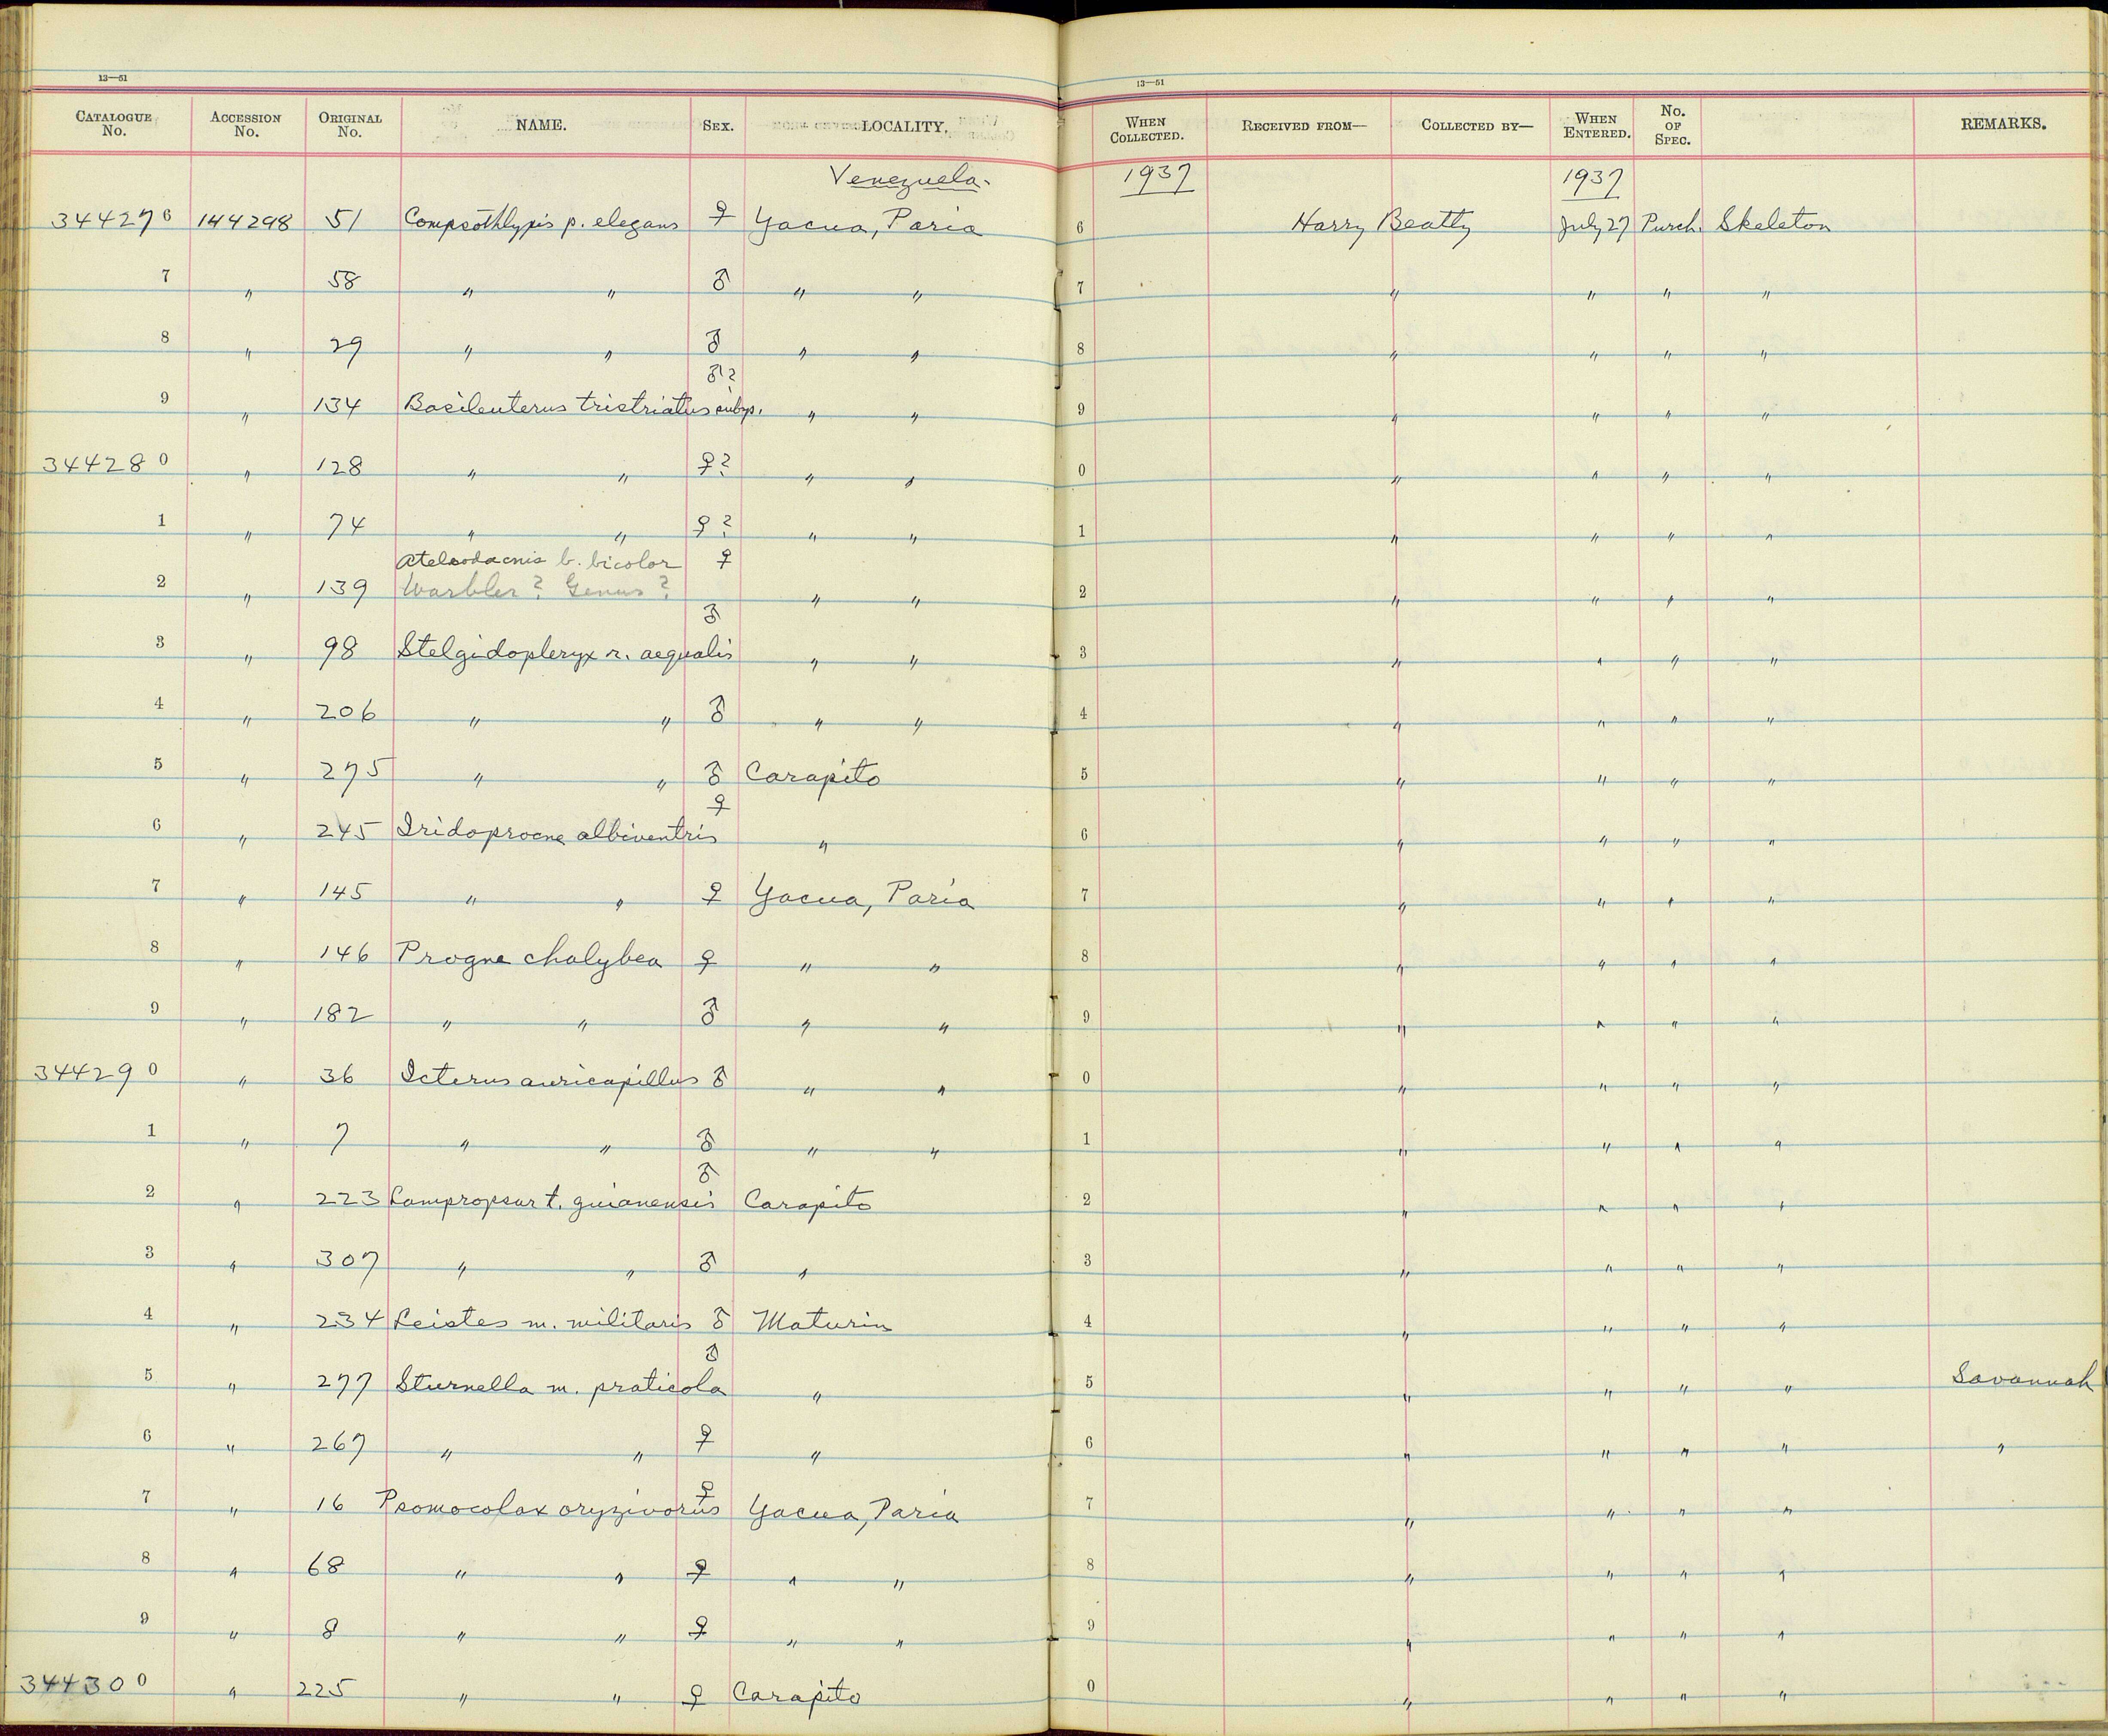 13—51
13—51
CATALOGUE No. ACCESSION No. ORIGINAL No. NAME. SEX. LOCALITY. WHEN COLLECTED. RECEIVED FROM— COLLECTED BY— WHEN ENTERED. No. OF SPEC. REMARKS.
Venezuela. 1937 1937
344276 144298 51 Compsothlypis p. elegans ♀ Yacua, Paria 6 Harry Beatty July 27 Purch. Skeleton
7 " 58 " " ♂ " " 7 " " " "
8 " 29 " " ♂ " " 8 " " " "
♂?
9 " 134 Basileuterus tristriatus subsp. " " 9 " " " "
344280 " 128 " " ♀? " " 0 " " " "
1 " 74 " " ♀? " " 1 " " " "
Ateleodacnis b. bicolor ♀
2 " 139 Warbler? Genus? " " 2 " " " "
♂
3 " 98 Stelgidopteryx r. aequalis " " 3 " " " "
4 " 206 " " ♂ " " 4 " " " "
5 " 275 " " ♂ Carapito 5 " " " "
♀
6 " 245 Iridoprocne albiventris " 6 " " " "
7 " 145 " " ♀ Yacua, Paria 7 " " " "
8 " 146 Progne chalybea ♀ " " 8 " " " "
9 " 182 " " ♂ " " 9 " " " "
344290 " 36 Icterus auricapillus ♂ " " 0 " " " "
1 " 7 " " ♂ " " 1 " " " "
♂
2 " 223 Lampropsar t. guianensis Carapito 2 " " " "
3 " 307 " " ♂ " 3 " " " "
4 " 234 Leistes m. militaris ♂ Maturin 4 " " " "
♂
5 " 277 Sturnella m. praticola " 5 " " " " Savannah
6 " 267 " " ♀ " 6 " " " " "
♀
7 " 16 Psomocolax oryzivorus Yacua, Paria 7 " " " "
8 " 68 " " ♀ " " 8 " " " "
9 " 8 " " ♀ " " 9 " " " "
344300 " 225 " " ♀ Carapito 0 " " " "